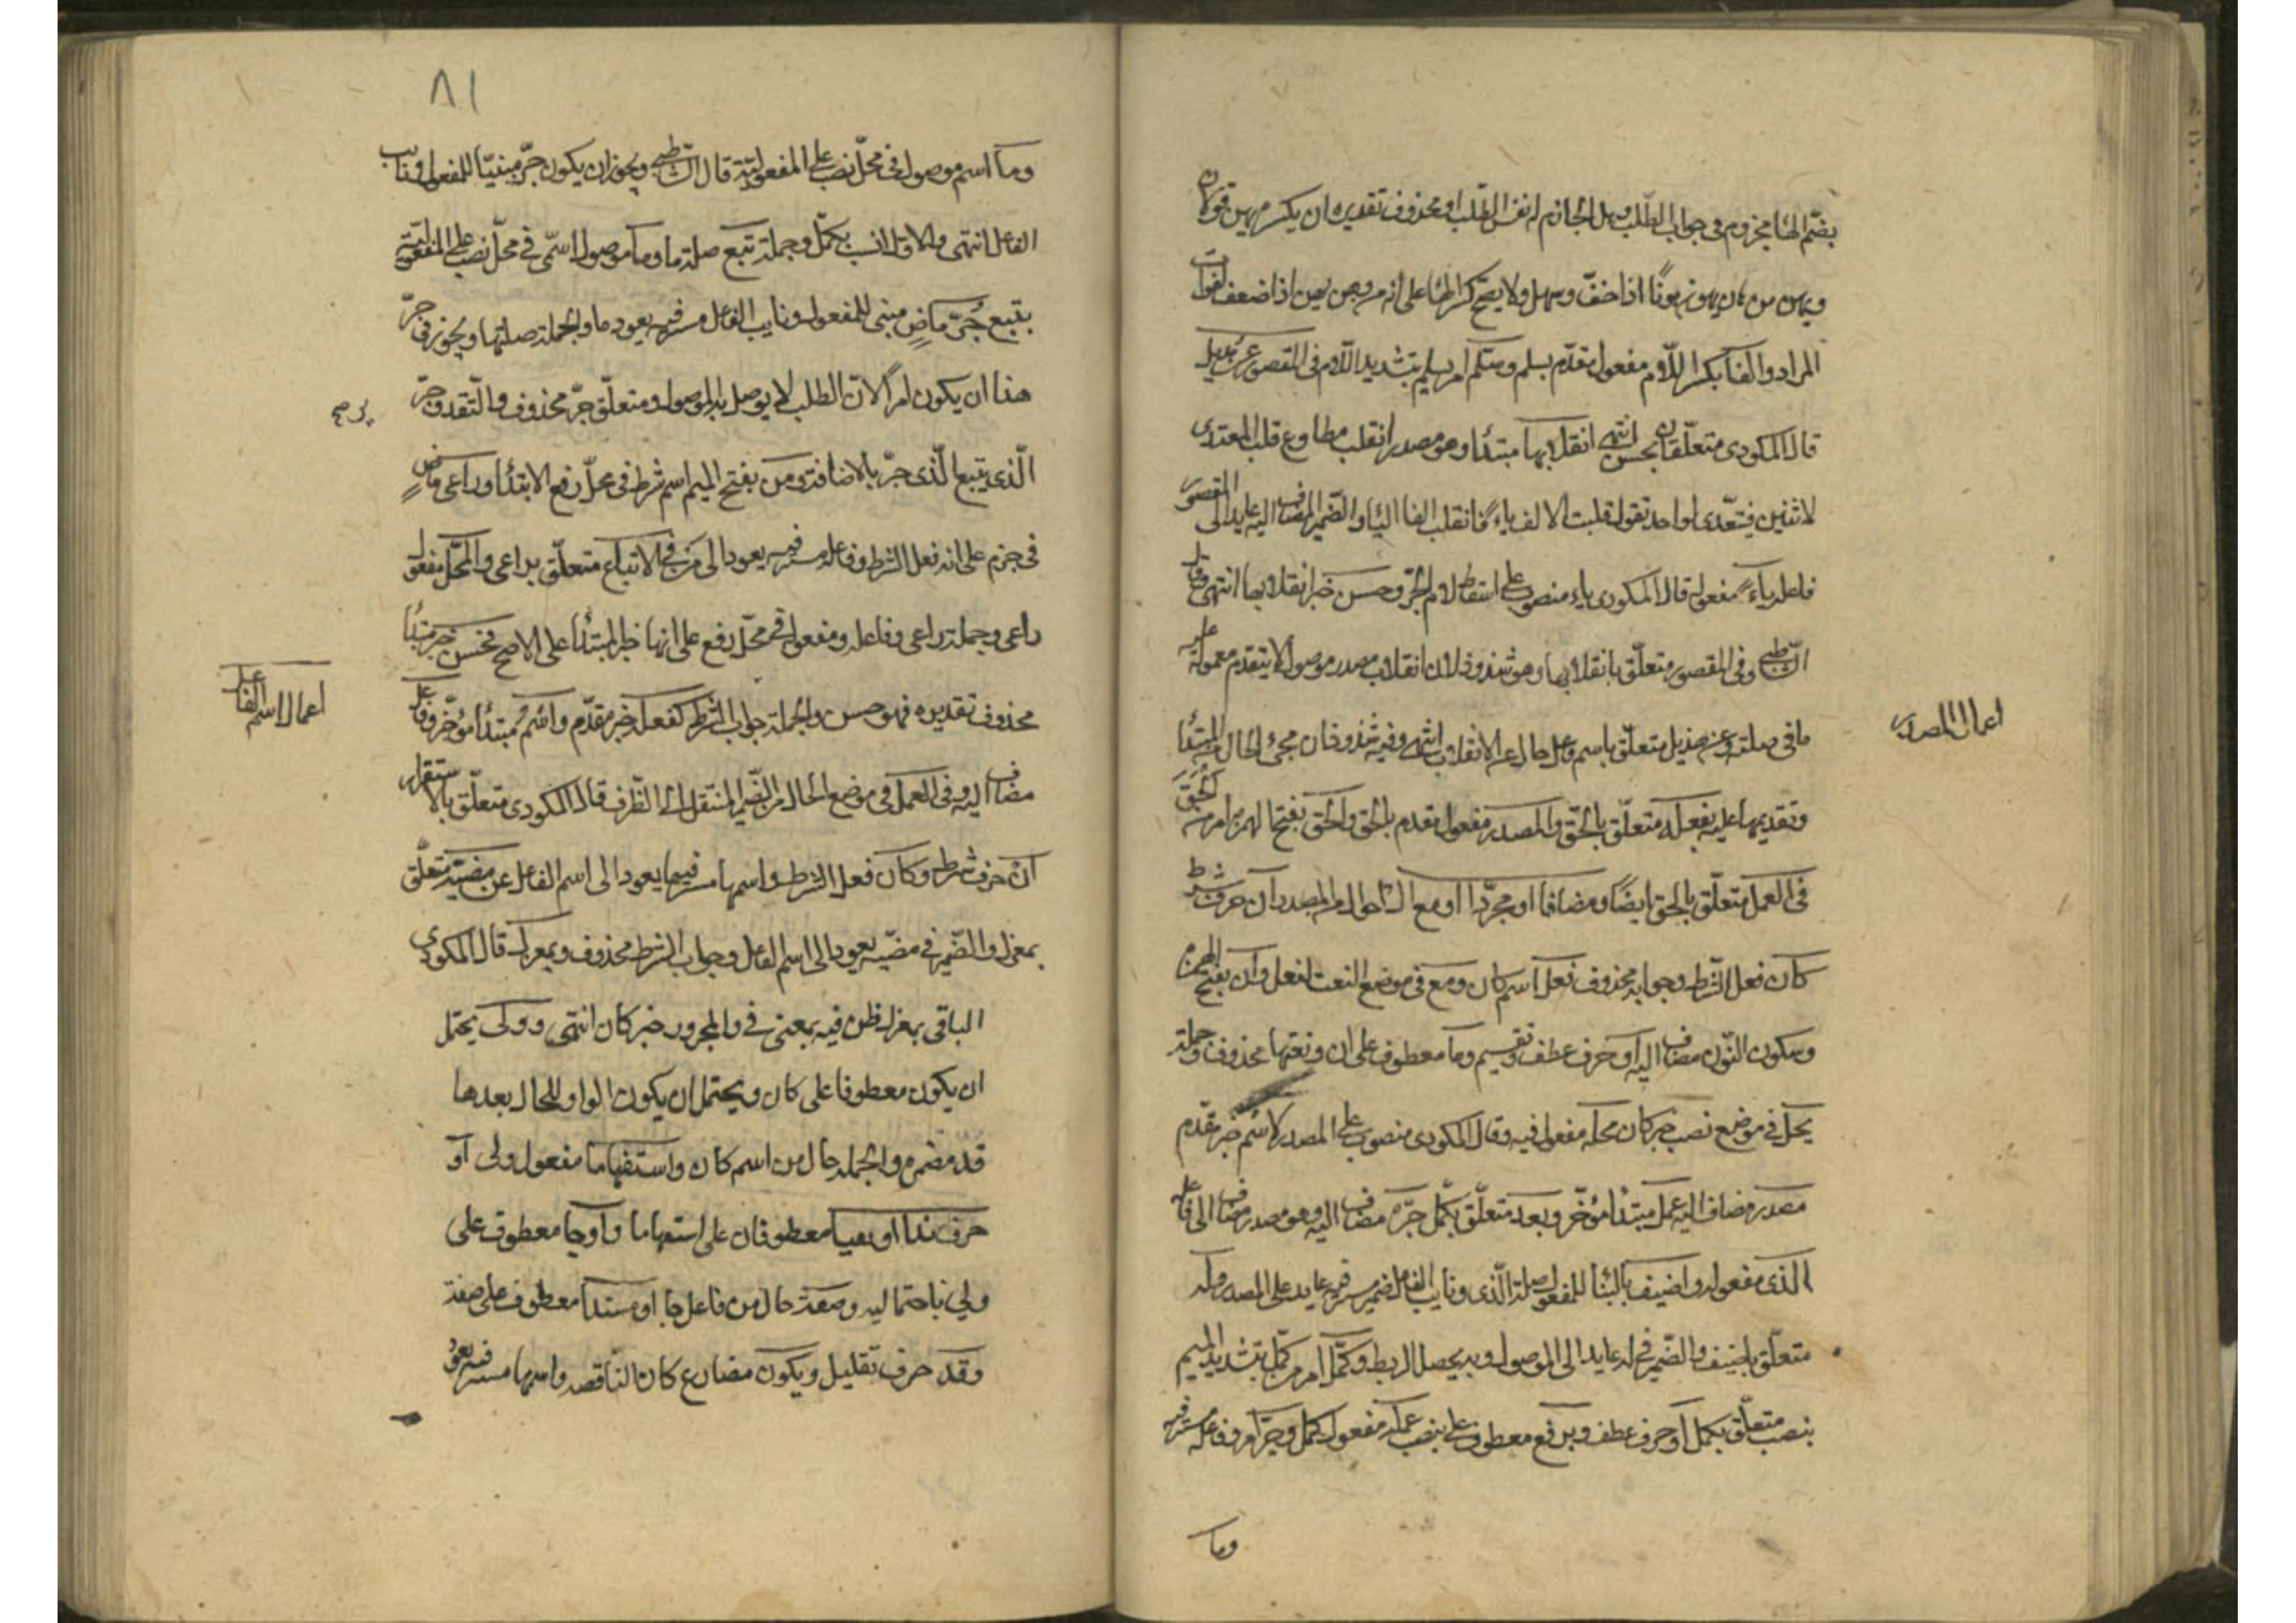 بضم الهاء مجزوم في جواب الطلب وهل الجازم له نفس الطلب او محذوف تقديره ان يكسر يهن قولان
ويهن من هان يهون هونا اذا خف وسهل ولا يصح كسر الهاء على انه من وهن يهن اذا ضعف لفوات
المراد والفا بكسر اللام مفعول مقدم بسلم وسلم امر يسلم بتشديد اللام وفي المقصور عن هذيل
قال المكودي متعلقان بحسن انتهى انقلابها مبتدأ وهو مصدر انقلب مطاوع قلب المتعدي
لاثنين فيتعدى لواحد تقول قلبت الالف ياء فانقلب الفا الياء والضمير المضاف اليه عايد الى المقصور
فاعله ياء مفعوله قال المكودي ياء منصوب على اسقاط لام الجر وحسن خبر انقلابها انتهى وقال
الشاطبي وفي المقصور متعلق بانقلابها وهو شذوذ لان انقلاب مصدر موصول لا يتقدم معموله عليه
ما في صلته وعن هذيل متعلق باسم وعل حال عن الانقلاب انتهى وفيه شذوذان مجئ الحال من المبتدأ
وتقديمها عليه بفعله متعلق بالحق والمصدر مفعول مقدم بالحق والحق بفتح الهمزة امر من الحق
في العمل متعلق بالحق ايضا ومضافا او مجردا او مع ال احوال من المصدر ان حرف شرط
كان فعل الشرط وجوابه محذوف فعل اسم كان ومع في موضع النعت لفعل وان بفتح الهمزة
وسكون النون مضاف اليه او حرف عطف وتقسيم وما معطوف على ان ونعتها محذوف وجملة
يحل في موضع نصب خبر كان محله مفعول فيه وقال المكودي منصوب على المصدر لاسم خبر مقدم
مصدر مضاف اليه عمل مبتدأ مؤخر وبعد متعلق بكمل جره مضاف اليه وهو مصدر مضاف الى فاعله
الذي مفعوله واضيف بالبناء للمفعول صلة الذي ونايب الفاعل ضمير مستتر فيه عايد على المصدر وله
متعلق باضيف والضمير في له عايد الى الموصول وبه يحصل الربط وكمل امر من كمل بتشديد الميم
بنصب متعلق بكمل او حرف عطف وبرفع معطوف على بنصب عمله مفعول كمل وجر امر وفاعله مستتر فيه
وما
اعمال المصدر
٨١
وما اسم موصول في محل نصب على المفعولية قال الشاطبي ويجوز ان يكون جر مبنيا للمفعول ونايب
الفاعل انتهى والاول انسب بكمل وجملة يتبع صلة ما وما موصول اسمي في محل نصب على المفعولية
بيتبع جر ماض مبني للمفعول ونايب الفاعل مستتر فيه يعود ما والجملة صلتها ويجوز في جر
هذا ان يكون امرا لان الطلب لا يوصل به الموصول ومتعلق جر محذوف والتقدير وجر
الذي يتبع الذي جر بالاضافة ومن بفتح الميم اسم شرط في محل رفع الابتدأ وراعى ماض
في جزم على انه فعل الشرط وفاعله مستتر فيه يعود الى من في الاتباع متعلق براعى والمحل مفعول
راعى وجملة راعى وفاعله ومفعوله في محل رفع على انها خبر المبتدأ على الاصح فحسن خبر مبتدأ
محذوف تقديره فهو حسن والجملة جواب الشرط كفعله خبر مقدم واسم مبتدأ مؤخر وفاعل
مضاف اليه وفي العمل في موضع الحال من الضمير المنتقل الى الظرف قال المكودي متعلق بالاستقرار
ان حرف شرط وكان فعل الشرط واسمها مستتر فيها يعود الى اسم الفاعل عن مضيه متعلق
بمعزل والضمير في مضيه يعود الى اسم الفاعل وجواب الشرط محذوف وبمعزل قال المكودي
الباقى بمعزل ظرفيه بمعنى في والمجرور خبر كان انتهى وولى يحتمل
ان يكون معطوفا على كان ويحتمل ان يكون الواو للحال بعدها
قد مضمره والجملة حال من اسم كان واستفهاما مفعول ولى او
حرف ندا او نفيا معطوفان على استفهاما واوجا معطوف على
ولي باحتماليه وصفة حال من فاعل جا او مسندا معطوف على صفة
وقد حرف تقليل ويكون مضارع كان الناقصة واسمها مستتر فيه يعود
اعمال اسم الفاعل